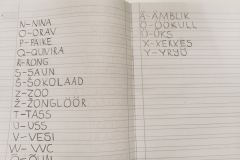 N-NINA
O-ORAV
P-PAIKE
R-RONG
S-SAUN
Š-ŠOKOLAAD
Z-ZOO
Ž-ŽONGLÖÖR
T-TASS
U-USS
V-VESI
W-WC
Ä-ÄMBLIK
Ö-ÖÖKULL
Ü-ÜKS